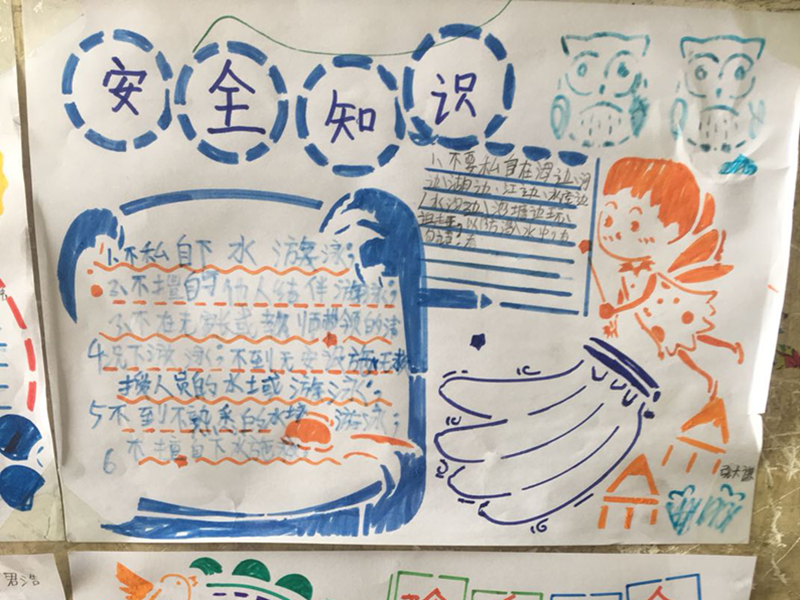 安全知识
1、不私自下水游泳;
2、不擅自与他人结伴游泳;
3、不在无家长或教师带领的情
4、况下游泳;不到无安全设施、无救
援人员的水土或游泳;
5、不到不熟悉的水域游泳;
6、不擅自下水施救
1、不要私自在河边、河
边、湖边、江边、水库边
水沟边、池塘边玩
追走, 以防掉入水中
君浩